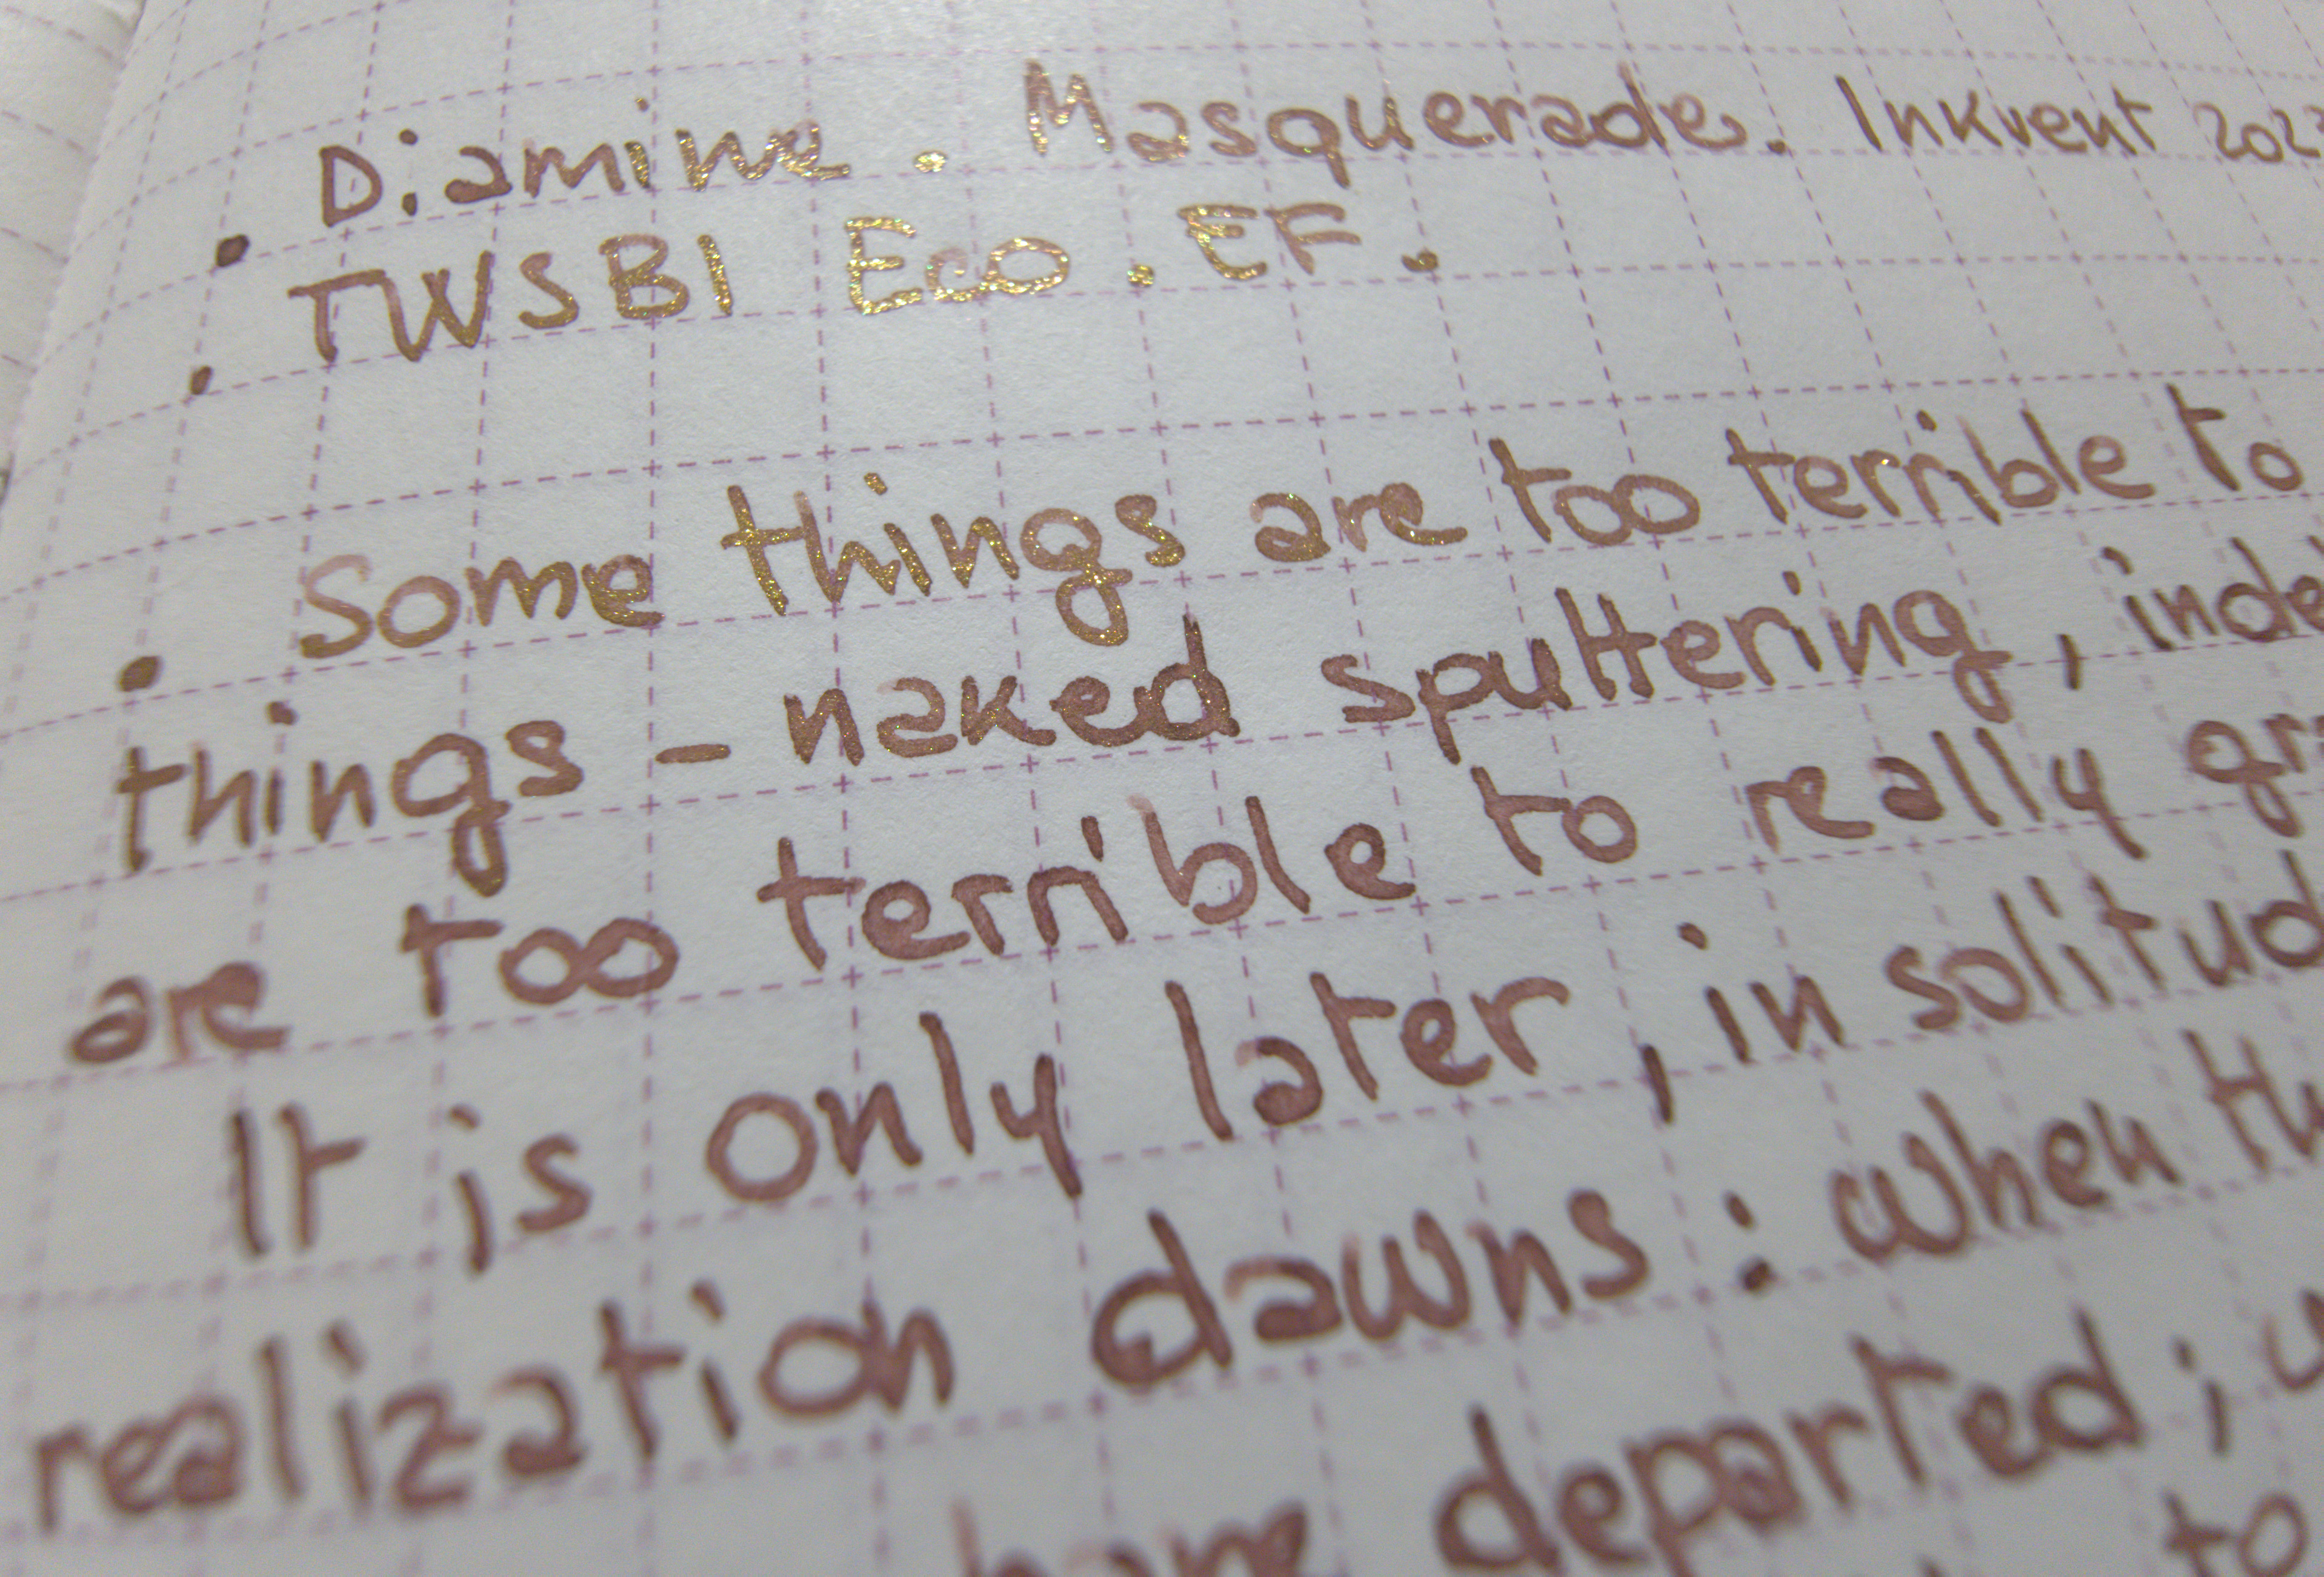 Diamine. Masquerade. Inkvent
TWSBI Eco. EF.
Some things are too terrible to
things - naked sputtering,
are too terrible to really
It is only later, in
realization dawns: when
departed;
to